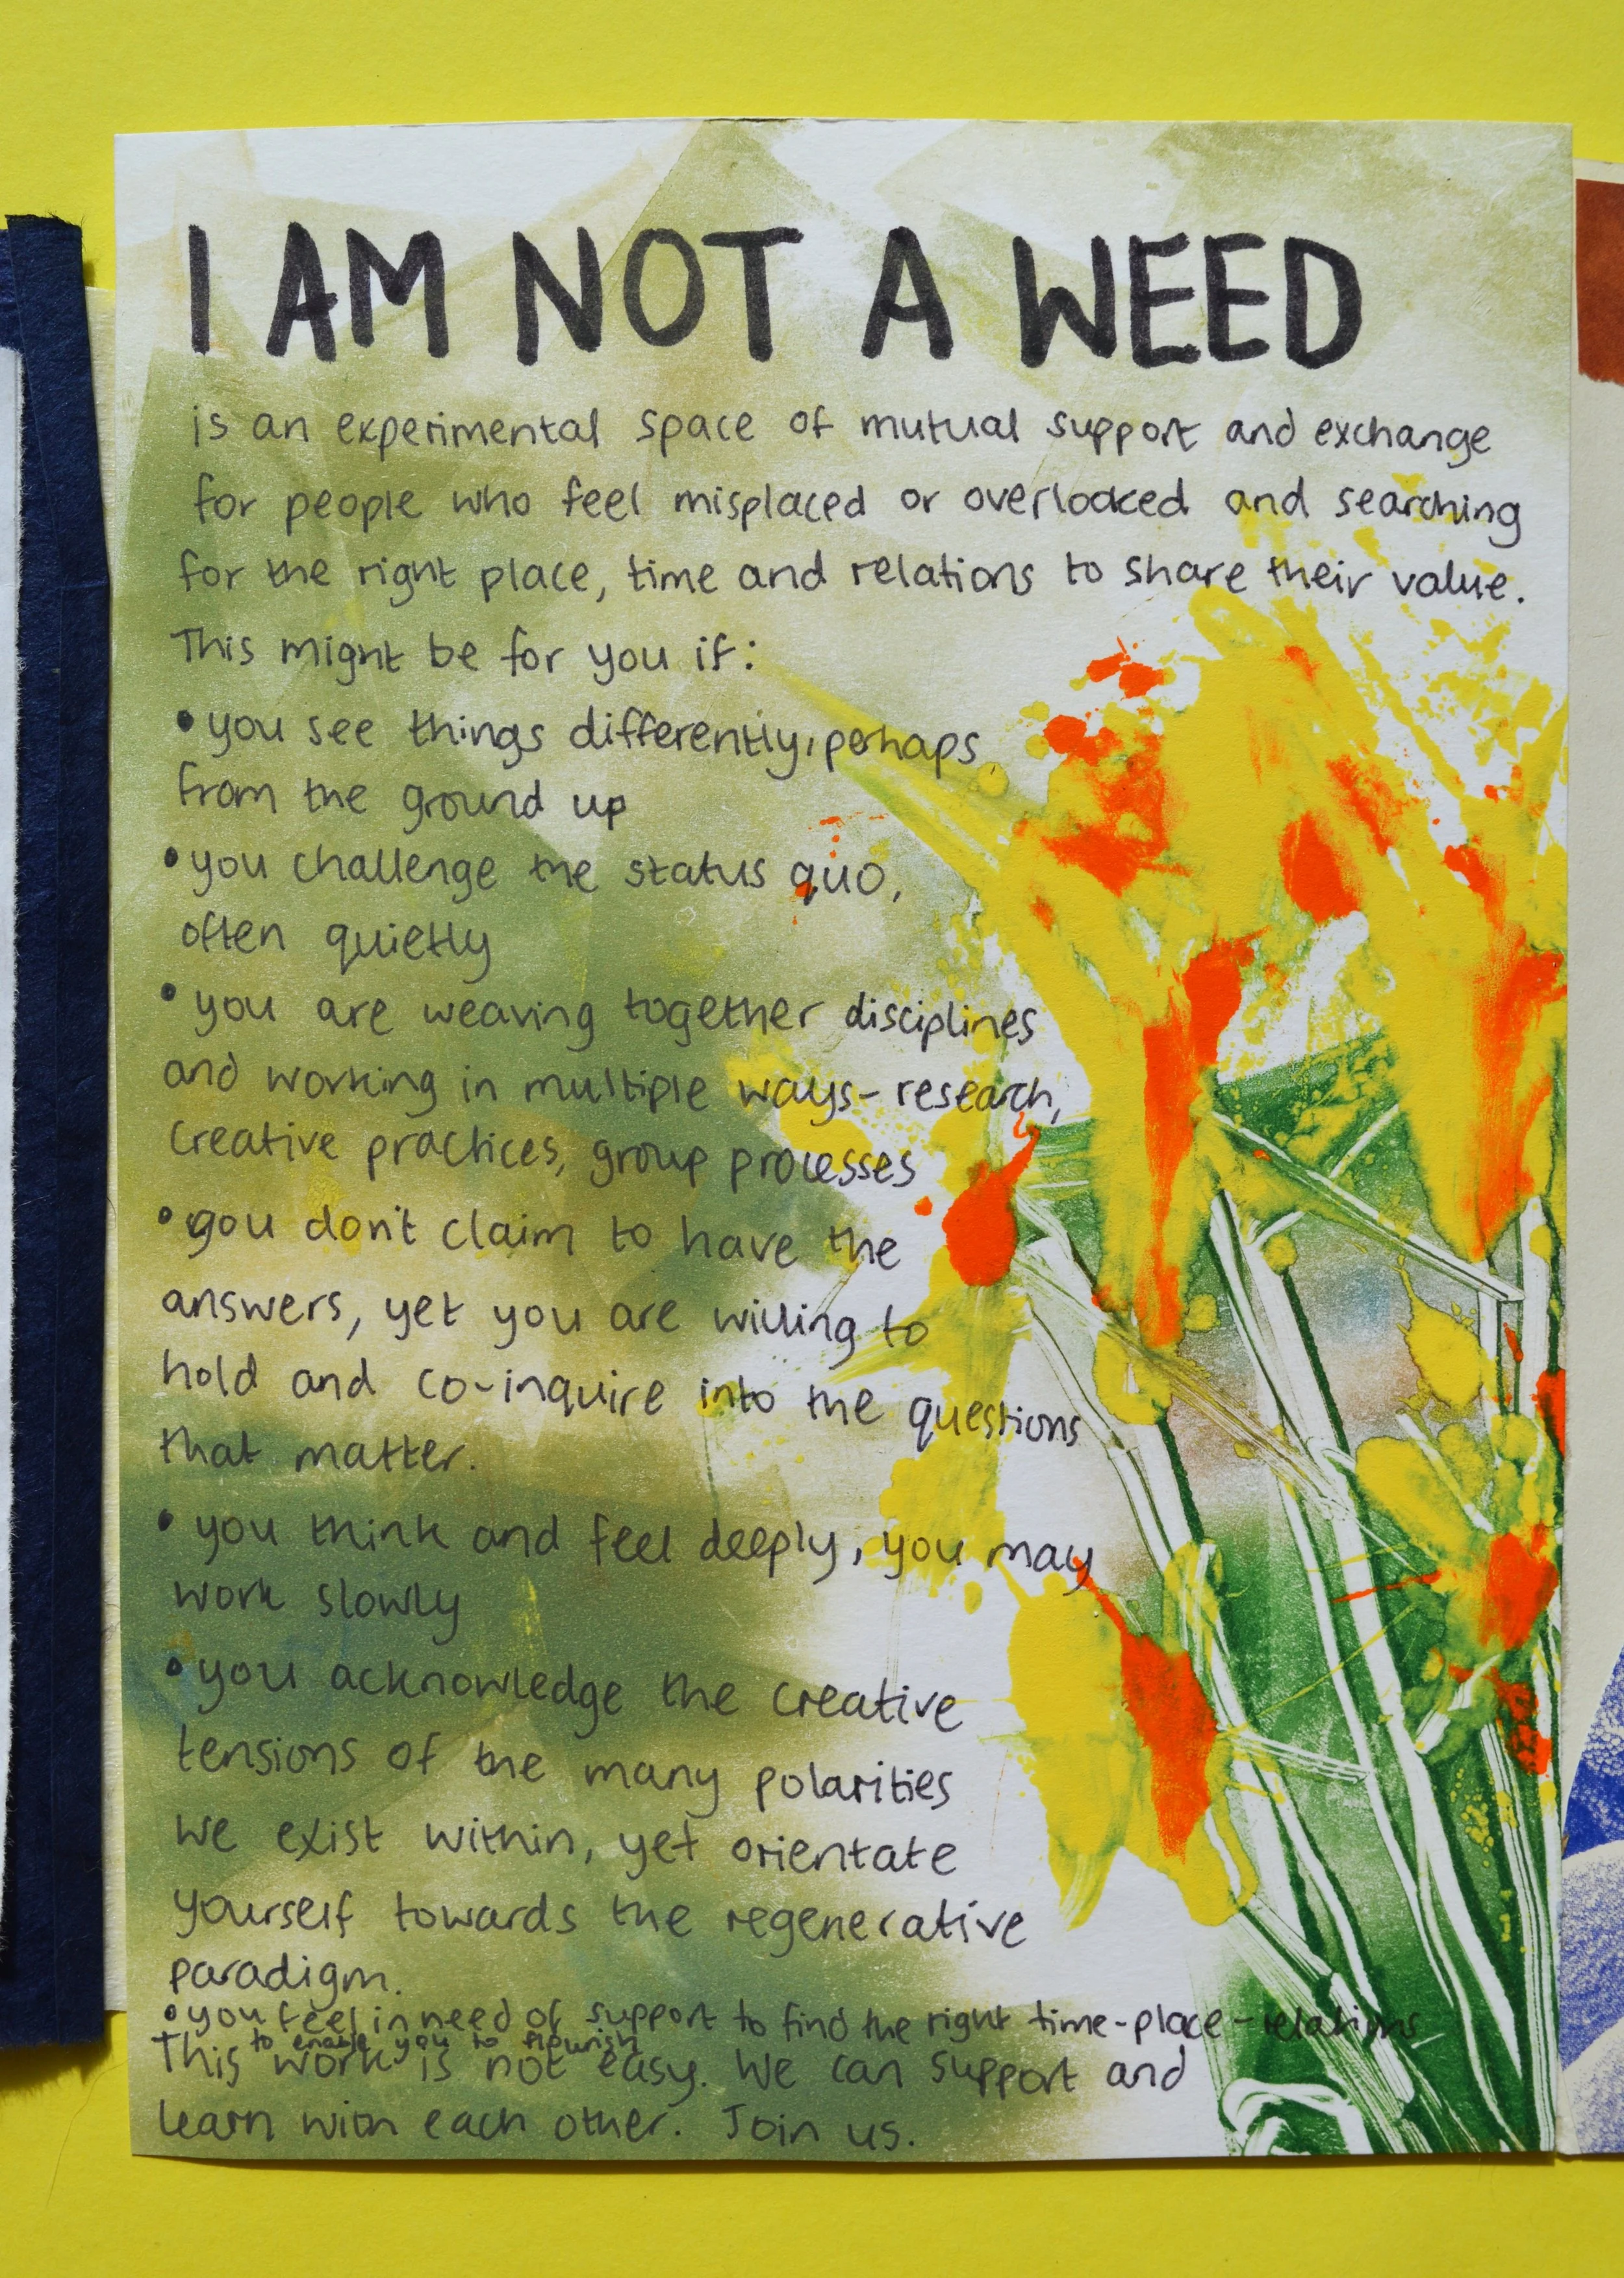 I AM NOT A WEED
is an experimental space of mutual support and exchange
for people who feel misplaced or overlooked and searching
for the right place, time and relations to share their value.
This might be for you if:
• you see things differently, perhaps
from the ground up
• you challenge the status quo,
often quietly
• you are weaving together disciplines
and working in multiple ways - research,
creative practices, group processes
• you don't claim to have the
answers, yet you are willing to
hold and co-inquire into the questions
that matter.
• you think and feel deeply, you may
work slowly
• you acknowledge the creative
tensions of the many polarities
we exist within, yet orientate
yourself towards the regenerative
paradigm.
• you feel in need of support to find the right time-place-relations
to enable you to flourish
This work is not easy. We can support and
learn with each other. Join us.